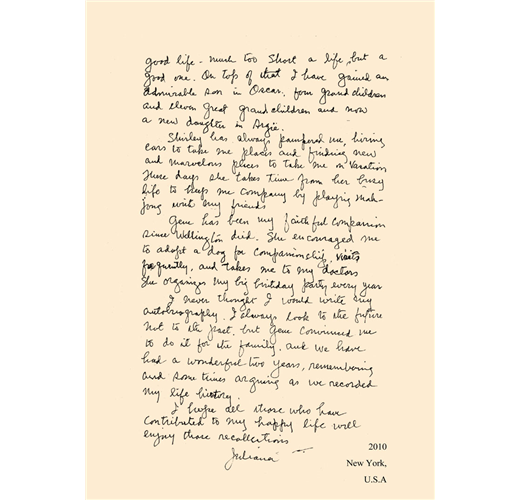 good life - much too short a life, but a
good one. On top of that I have gained an
admirable son in Oscar, four grandchildren
and eleven great grandchildren and now
a new daughter in Angie.
Shirley has always pampered me, hiring
cars to take me places and finding new
and marvelous places to take me on vacation
These days she takes time from her busy
life to keep me company by playing mah-
jong with my friends
Gene has been my faithful companion
since Wellington died. She encouraged me
to adopt a dog for companionship, visits
frequently, and takes me to my doctors
She organizes my big birthday party every year
I never thought I would write my
autobiography. I always look to the future
not to the past, but Gene convinced me
to do it for the family, and we have
had a wonderful two years, remembering
and sometimes arguing as we recorded
my life history.
I hope all those who have
contributed to my happy life will
enjoy these recollections
Juliana
2010
New York,
U.S.A